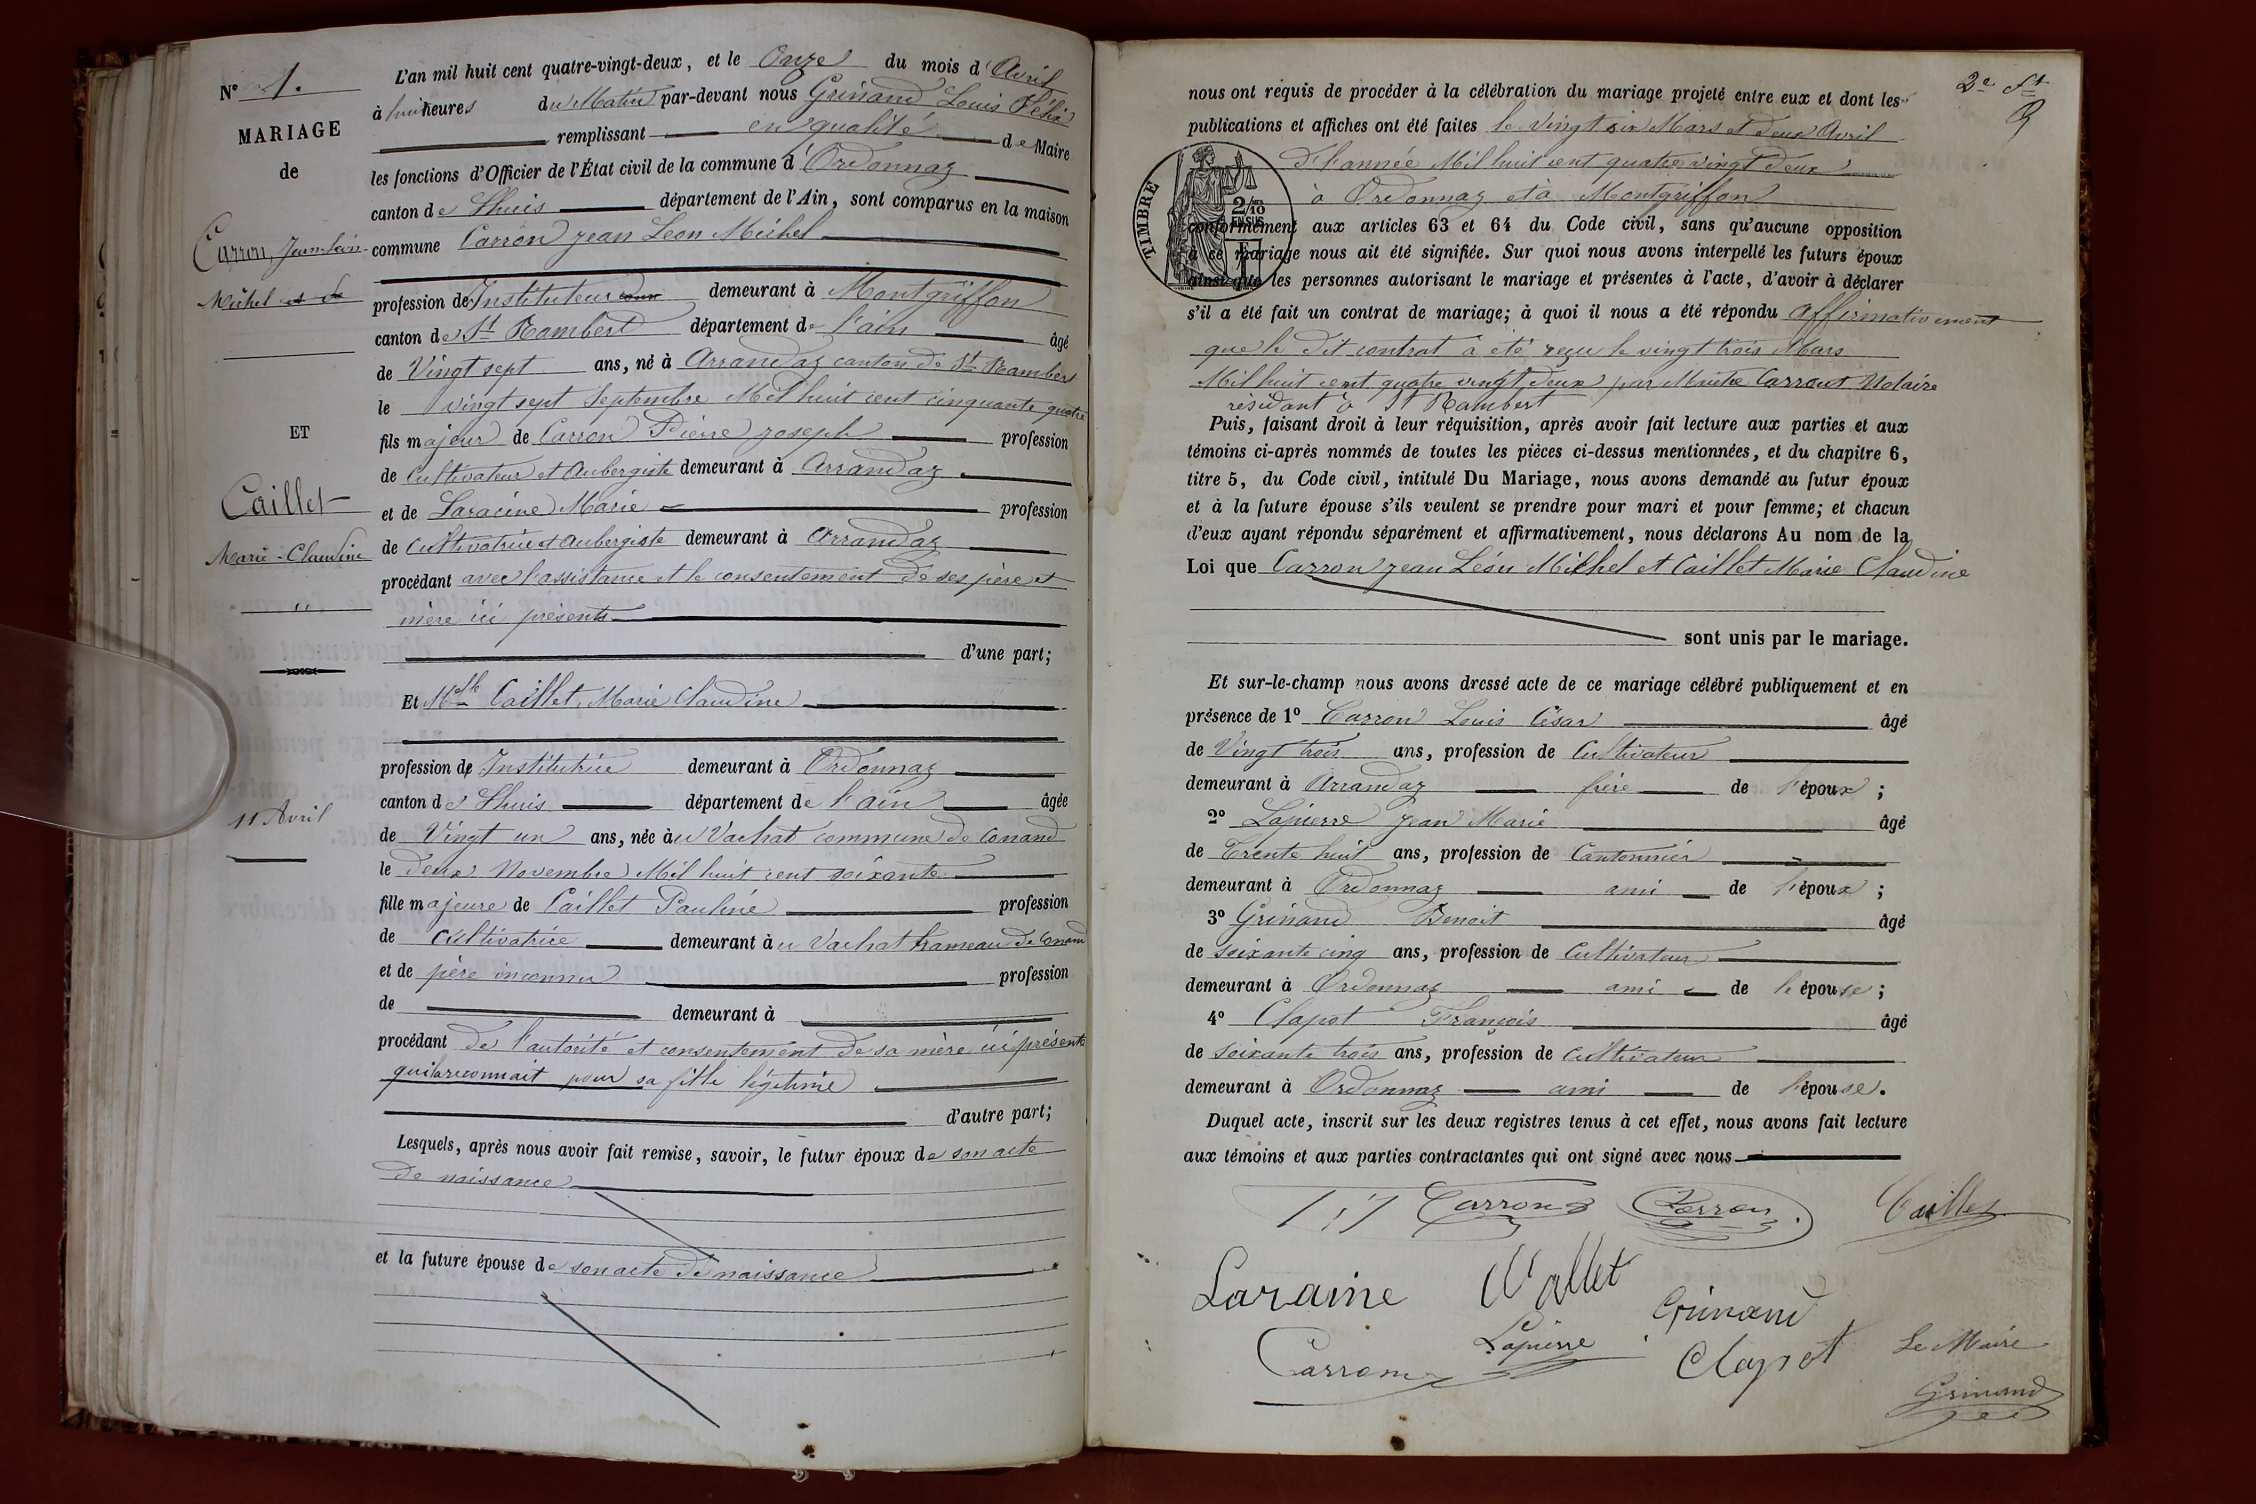 N° 1.
MARIAGE
de
Carron, Jean-Léon-
Michel et de
ET
Caillet
Marie-Claudine
11 Avril
L'an mil huit cent quatre-vingt-deux, et le Onze du mois d'Avril
à huit heures du Matin par-devant nous Grinand Louis Félix
remplissant en qualité de Maire
les fonctions d'Officier de l'État civil de la commune d'Ordonnaz
canton de Lhuis département de l'Ain, sont comparus en la maison
commune Carron jean Leon Michel
profession de Instituteur demeurant à Montgriffon
canton de St Rambert département de l'ain âgé
de Vingt sept ans, né à Arrandaz canton de St Rambert
le vingt sept Septembre Mil huit cent cinquante quatre
fils majeur de Carron Pierre joseph profession
de Cultivateur et Aubergiste demeurant à Arrandaz
et de Laracine Marie profession
de Cultivatrice et Aubergiste demeurant à Arrandaz
procédant avec l'assistance et le consentement de ses père et
mère ici présents
d'une part;
Et Melle Caillet Marie Claudine
profession de Institutrice demeurant à Ordonnaz
canton de Lhuis département de l'ain âgée
de Vingt un ans, née au Vachat commune de Conand
le deux Novembre Mil huit cent soixante
fille majeure de Caillet Pauline profession
de Cultivatrice demeurant au Vachat hameau de Conand
et de père inconnu profession
de demeurant à
procédant de l'autorité et consentement de sa mère ici présente
qui la reconnait pour sa fille légitime
d'autre part;
Lesquels, après nous avoir fait remise, savoir, le futur époux de son acte
de naissance
et la future épouse de son acte de naissance
2e ft
nous ont réquis de procéder à la célébration du mariage projeté entre eux et dont les
publications et affiches ont été faites le vingt six Mars et deux Avril
de l'année Mil huit cent quatre vingt deux
à Ordonnaz et à Montgriffon
TIMBRE
2/10
EN SUS
conformément aux articles 63 et 64 du Code civil, sans qu'aucune opposition
à ce mariage nous ait été signifiée. Sur quoi nous avons interpellé les futurs époux
ainsi que les personnes autorisant le mariage et présentes à l'acte, d'avoir à déclarer
s'il a été fait un contrat de mariage; à quoi il nous a été répondu affirmativement
que le dit contrat a été reçu le vingt trois Mars
Mil huit cent quatre vingt deux par Maître Notaire
résidant à St Rambert
Puis, faisant droit à leur réquisition, après avoir fait lecture aux parties et aux
témoins ci-après nommés de toutes les pièces ci-dessus mentionnées, et du chapitre 6,
titre 5, du Code civil, intitulé Du Mariage, nous avons demandé au futur époux
et à la future épouse s'ils veulent se prendre pour mari et pour femme; et chacun
d'eux ayant répondu séparément et affirmativement, nous déclarons Au nom de la
Loi que Carron jean Léon Michel et Caillet Marie Claudine
sont unis par le mariage.
Et sur-le-champ nous avons dressé acte de ce mariage célébré publiquement et en
présence de 1° Carron Louis César âgé
de Vingt trois ans, profession de Cultivateur
demeurant à Arrandaz frère de l'époux ;
2° Lapierre jean Marie âgé
de Trente huit ans, profession de Cantonnier
demeurant à Ordonnaz ami de l'époux ;
3° Grinand Benoit âgé
de soixante cinq ans, profession de Cultivateur
demeurant à Ordonnaz ami de l'épouse ;
4° Clapot François âgé
de soixante trois ans, profession de Cultivateur
demeurant à Ordonnaz ami de l'épouse.
Duquel acte, inscrit sur les deux registres tenus à cet effet, nous avons fait lecture
aux témoins et aux parties contractantes qui ont signé avec nous
Carron Carron Caillet
Laracine Caillet Grinand
Carron Lapierre Clapot Le Maire
Grinand